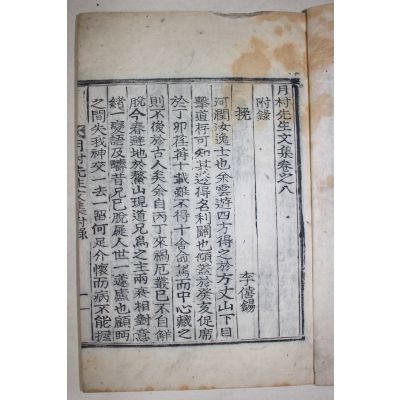 月村先生文集卷之八
附錄
挽
李僖錫
河潤汝逸士也余雲遊四方得之於方丈山下目
擊道存可知其淡得名利關也傾蓋於癸亥促席
於丁卯荏苒十載雖不得十舍命駕而中心藏之
則不後於古人矣奈自丙丁來禍厄叢已不自鮮
脫今春避地於鰲山現道兄爲之主兩衰相對意
緖一變語及疇昔兄已脫屣人世一蘧廬也顧眄
之間失我神交一去一留何足介懷而病不能握
月村先生文集附錄
一